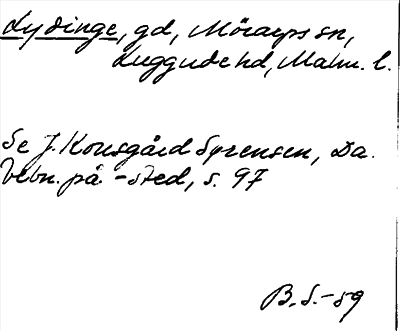 Lydinge, gd, Mörarps sn,
Luggude hd, Malm. l.
Se J. Kousgård Sørensen, Da.
bebn. på -sted, s. 97
B. S. -59